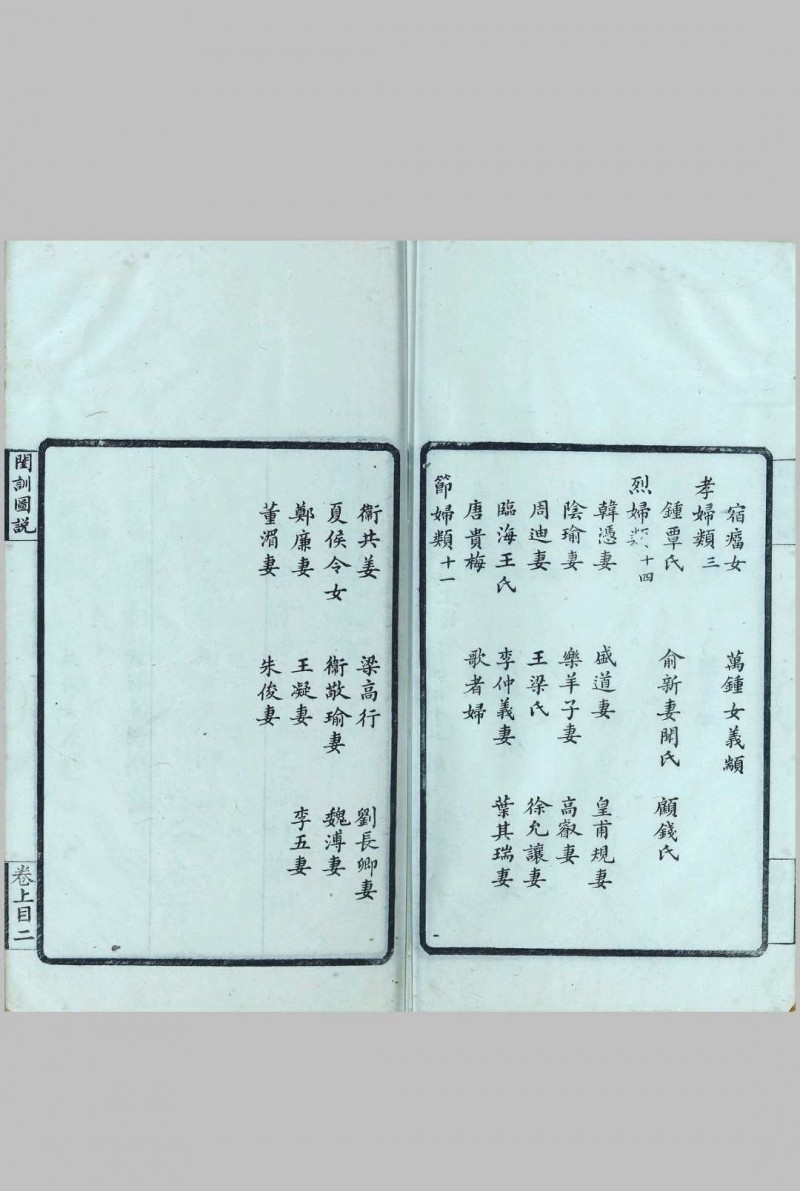 宿瘤女　萬鍾女義顓
孝婦類三
鍾覃氏　俞新妻聞氏　顧錢氏
烈婦類十四
韓憑妻　盛道妻　皇甫規妻
陰瑜妻　樂羊子妻　高叡妻
周迪妻　王梁氏　徐允讓妻
臨海王氏　李仲義妻　葉其瑞妻
唐貴梅　歌者婦
節婦類十一
衛共姜　梁高行　劉長卿妻
夏侯令女　衛敬瑜妻　魏溥妻
鄭廉妻　王凝妻　李五妻
董湄妻　朱俊妻
閨訓圖説
卷上目二